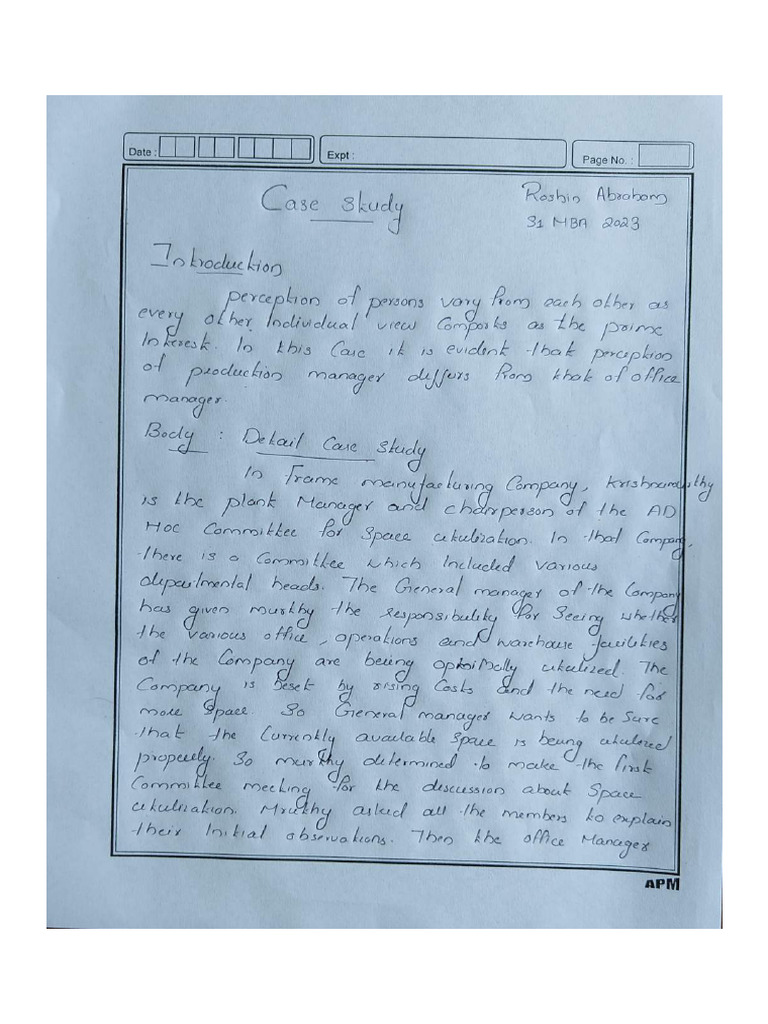 Date :
Expt :
Page No. :
Case study
Roshin Abraham
31 MBA 2023
Introduction
perception of persons vary from each other as
every other Individual view Comports as the prime
Interest. In this Case it is evident that perception
of production manager differs from that of office
manager.
Body : Detail Case study
In Frame manufacturing Company, Krishnamurthy
is the plant Manager and chairperson of the AD
Hoc Committee for Space utulization. In that Company,
there is a Committee which Included various
departmental heads. The General manager of the Company
has given murthy the responsibility for Seeing whether
the various office, operations and warehouse facilities
of the Company are being optimally utulized. The
Company is Beset by rising Costs and the need for
more Space. So General manager wants to be Sure
that the Currently available Space is being utulized
properly. So murthy determined to make the first
Committee meeting for the discussion about Space
utulization. Mruthy asked all the members to explain
their Initial observations. Then the office Manager
APM